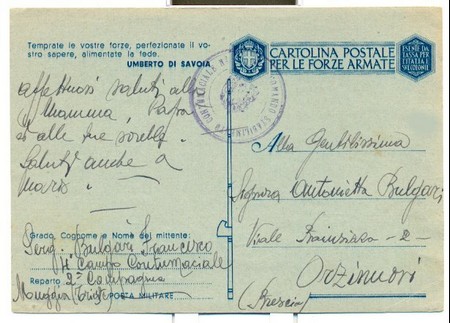 Temprate le vostre forze, perfezionate il vo-
stro sapere, alimentate la fede.
UMBERTO DI SAVOIA
CARTOLINA POSTALE
PER LE FORZE ARMATE
ESENTE DA
TASSA PER
CITTA E I
affettuosi saluti alla
Mamma, Papà
e alle mie sorelle.
Saluti anche a
Mario.
Alla Gentilissima
Signora Antonietta Bulgari
Viale - 2 -
Orzinuovi
(Brescia)
Grado, Cognome e Nome del mittente:
Serg. Bulgari Francesco
4° Campo Contumaciale
Reparto 2ª Compagnia
Muggia (Trieste) POSTA MILITARE